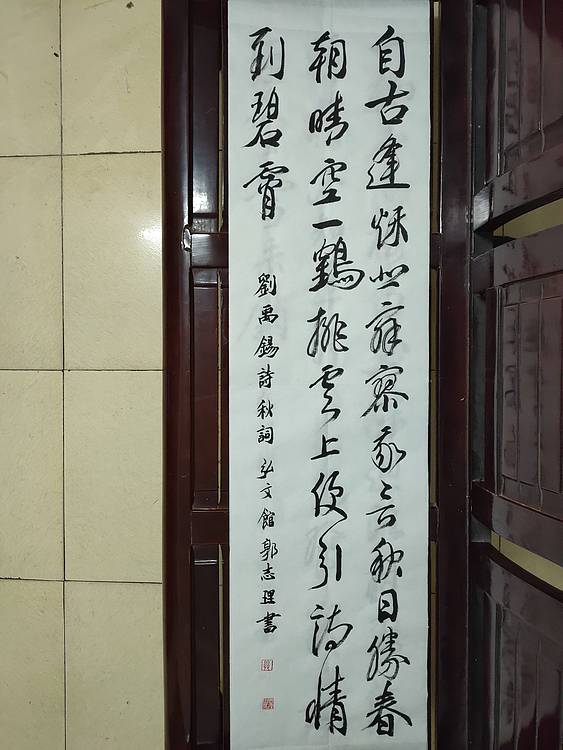 自古逢秌悲寂寥我言秋日勝春
朝晴空一鶴排雲上便引詩情
到碧霄
劉禹錫詩秋詞弘文館郭志理書